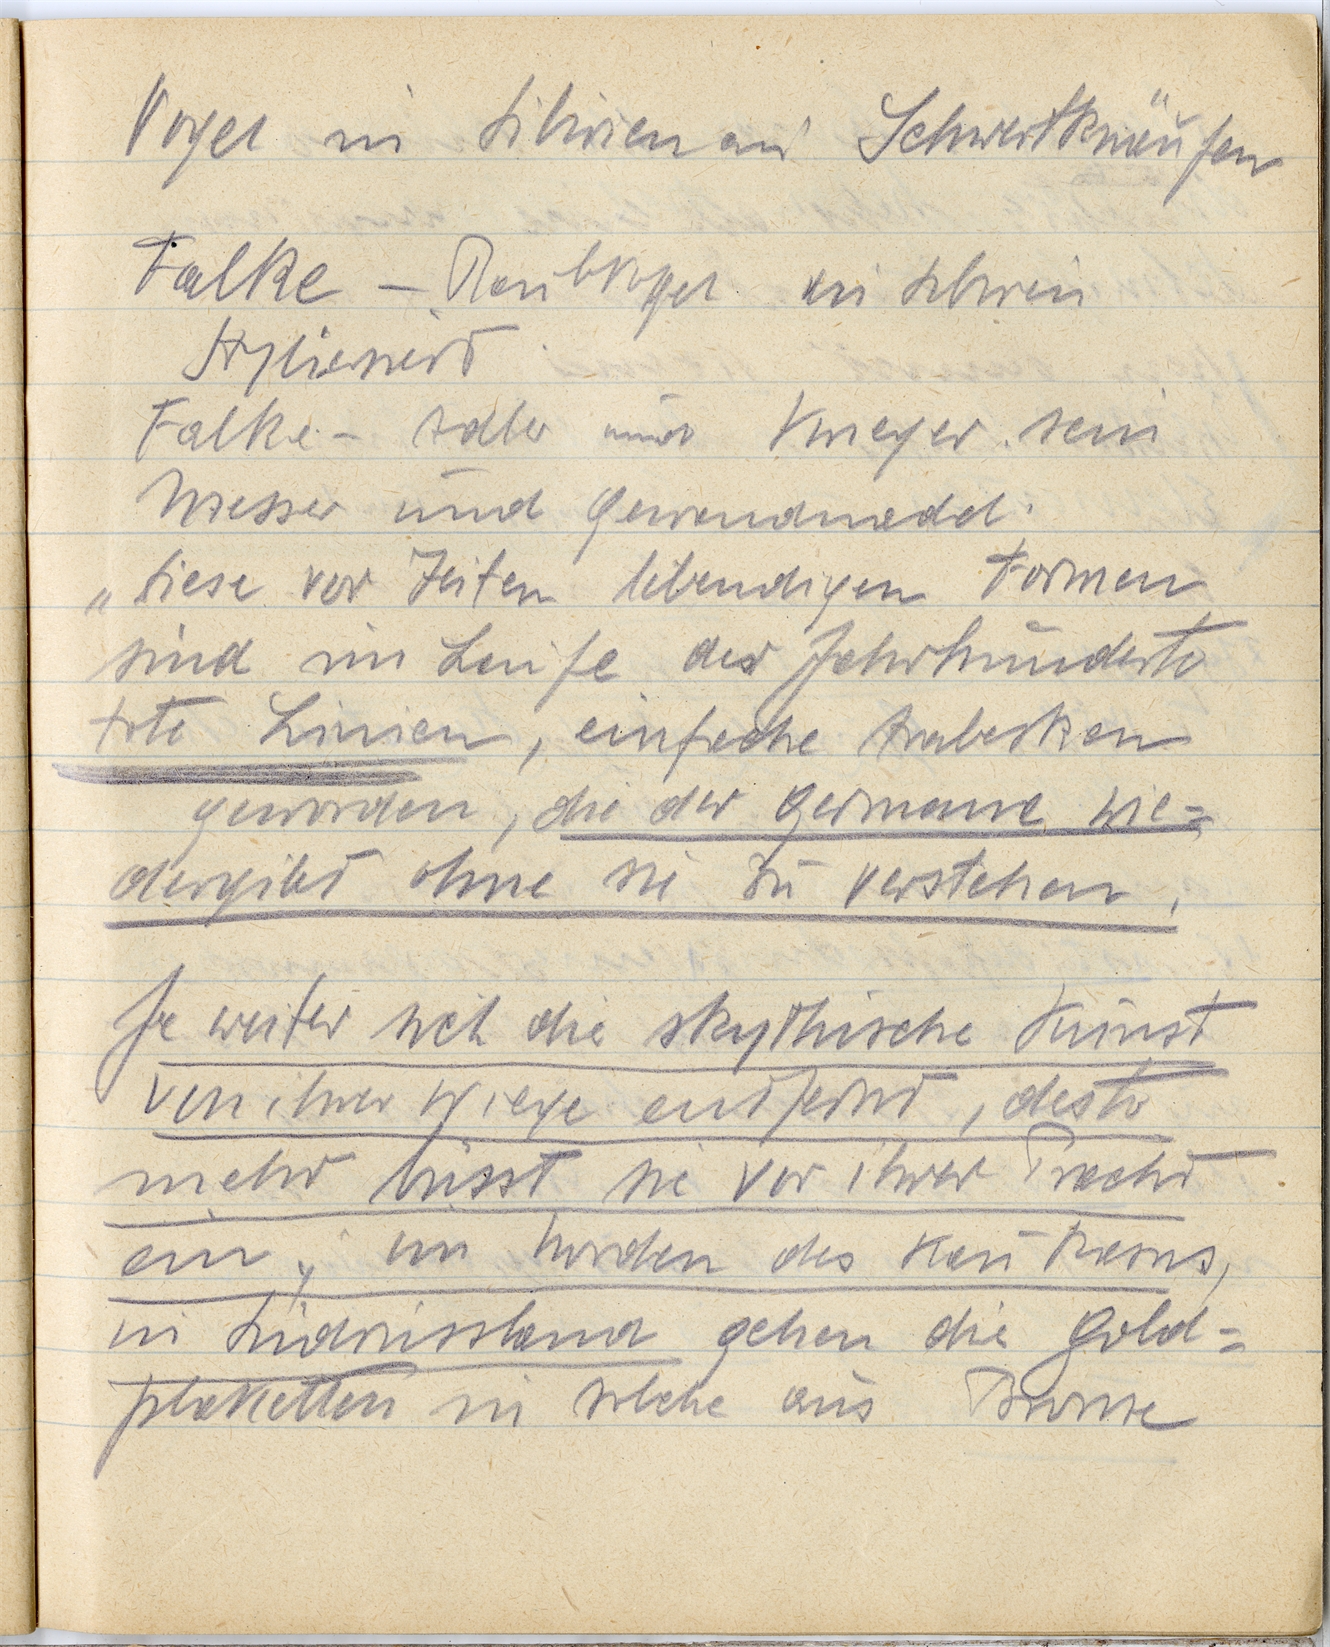 Vogel in Sibirien an Schwertknäufen
Falke – Raubvogel in Sibirien
stylisiert
Falke – Adler sein
Messer und Gewandnadel.
„Diese vor Zeiten lebendigen Formen
sind im Laufe der Jahrhunderte
tote Linien, einfache Arabesken
geworden, die der Germane wie=
dergibt ohne sie zu verstehen.
Je weiter sich die skythische Kunst
von ihrer Wiege entfernt, desto
mehr büsst sie von ihrer Pracht
ein, im Norden des Kaukasus,
in Südrussland gehen die Gold=
plaketten in solche aus Bronze